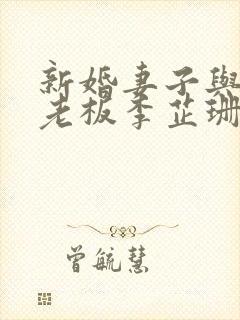 新婚妻子與
老板李芷珊
曾毓慧